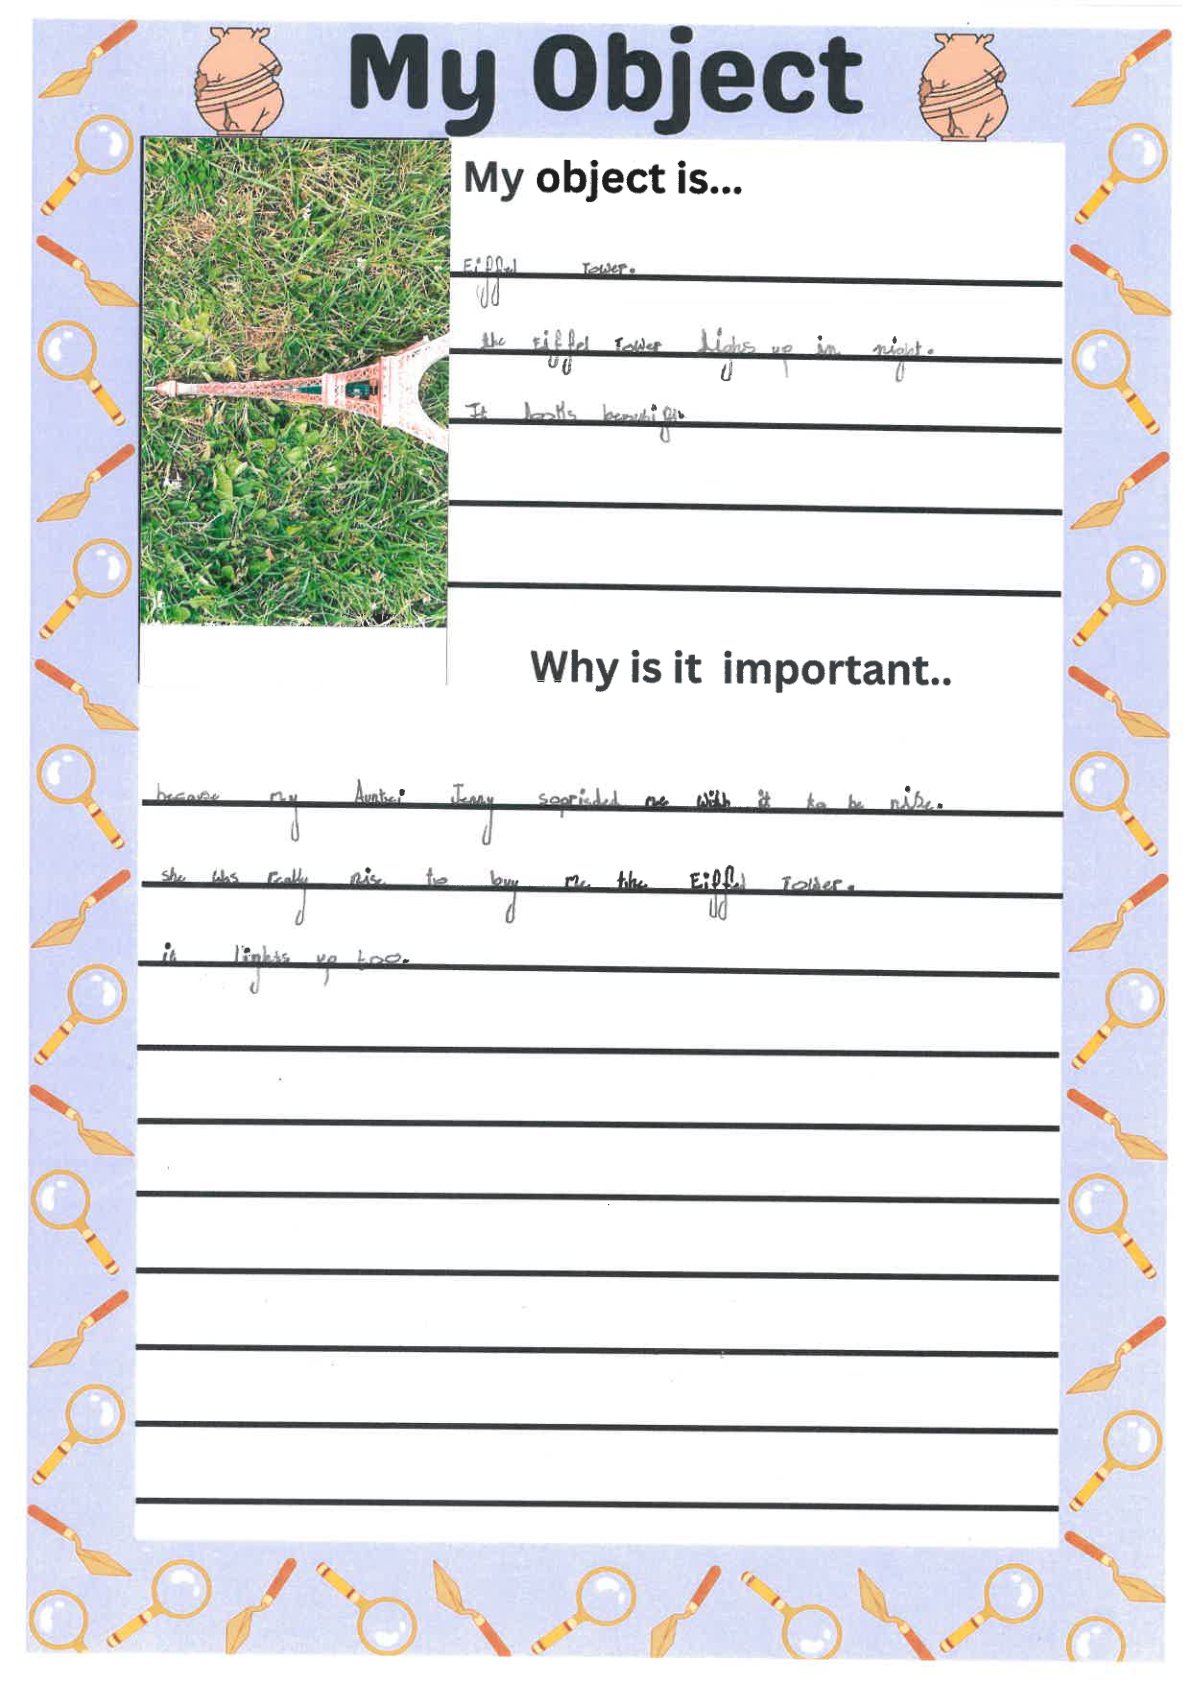 My Object
My object is...
Eiffel Tower.
the Eiffel Tower lighs up in night.
It looks beautifl.
Why is it important..
because my Auntei Jenny soprieded me with it to be nise.
she was really nise to buy me the Eiffel Tower.
it lights up too.